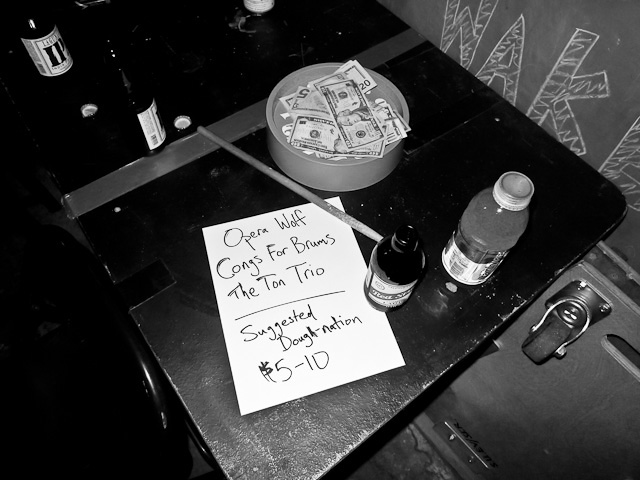 Opera Wolf
Congs For Brums
The Ton Trio
Suggested
Dough-nation
$5-10
20